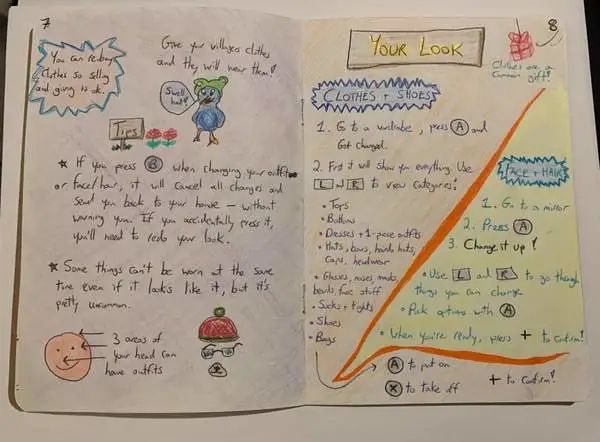 7
You can re-buy
Clothes so selling
and giving is ok.
Give your villagers clothes
and they will wear them!
Swell
hat!
Tips
★ If you press B when changing your outfit
or face/hair, it will cancel all changes and
Send you back to your house - without
warning you. If you accidentally press it,
you'll need to redo your look.
★ Some things can't be worn at the same
time even if it looks like it, but it's
pretty uncommon.
3 areas of
your head can
have outfits
8
YOUR LOOK
Clothes are a
Common gift!
CLOTHES + SHOES
1. Go to a wardrobe, press A and
Get changed.
2. First it will show you everything. Use
L and R to view categories!
• Tops
• Bottoms
• Dresses + 1-piece outfits
• Hats, bows, hats,
Caps, headwear
• Glasses, noses, masks,
beards face stuff
• Socks + tights
• Shoes
• Bags
A to put on
X to take off
+ to confirm!
FACE + HAIR
1. Go to a mirror
2. Press A
3. Change it up!
• Use L and R to go through
things you can change
• Pick options with A
• When you're ready, press + to confirm!